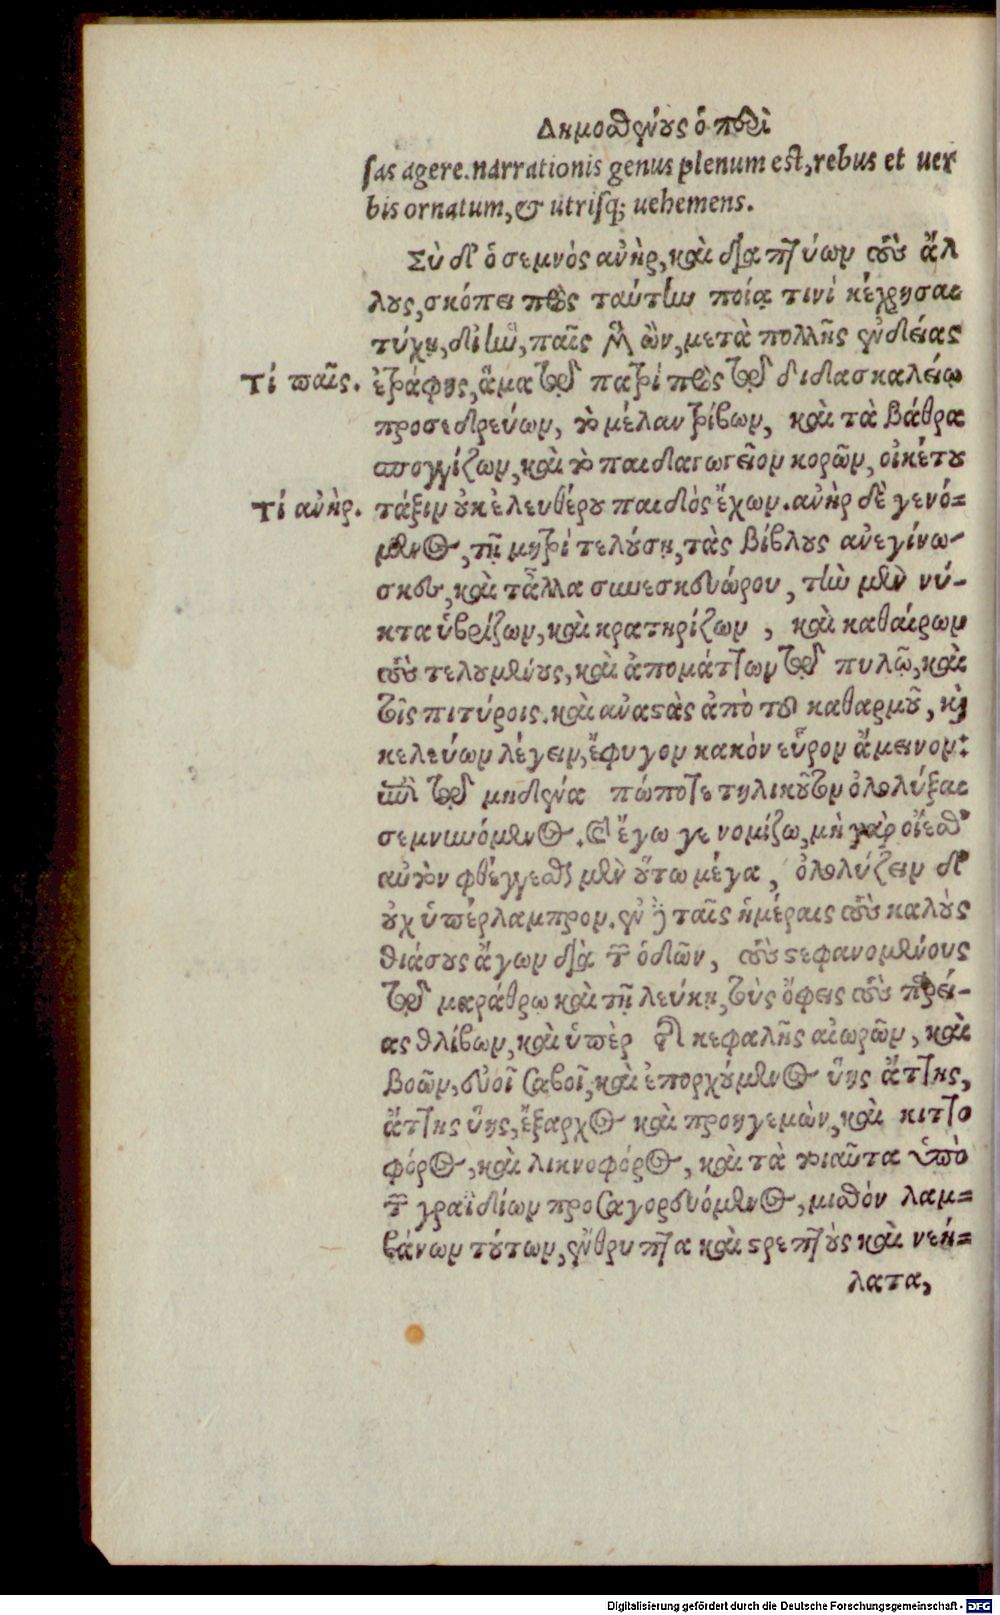 Δημοσθένους ὁ περὶ
sas agere. narrationis genus plenum est, rebus et uer
bis ornatum, & utrisq; uehemens.
Σὺ δ' ὁ σεμνὸς ἀνὴρ, καὶ διαπτύων τοὺς ἄλ
λους, σκόπει πρὸς ταύτην ποίᾳ τινὶ κέχρησαι
τύχῃ, δι' ἣν, παῖς μὲν ὢν, μετὰ πολλῆς ἐνδείας
τί παῖς. ἐτράφης, ἅμα τῷ πατρὶ πρὸς τῷ διδασκαλείῳ
προσεδρεύων, τὸ μέλαν τρίβων, καὶ τὰ βάθρα
σπογγίζων, καὶ τὸ παιδαγωγεῖον κορῶν, οἰκέτου
τί ἀνὴρ. τάξιν οὐκ ἐλευθέρου παιδὸς ἔχων. ἀνὴρ δὲ γενό-
μενος, τῇ μητρὶ τελούσῃ, τὰς βίβλους ἀνεγίνω-
σκες, καὶ τἆλλα συνεσκευώρου, τὴν μὲν νύ-
κτα νεβρίζων, καὶ κρατηρίζων, καὶ καθαίρων
τοὺς τελουμένους, καὶ ἀπομάττων τῷ πηλῷ, καὶ
τοῖς πιτύροις. καὶ ἀναστὰς ἀπὸ τοῦ καθαρμοῦ, καὶ
κελεύων λέγειν, ἔφυγον κακὸν εὗρον ἄμεινον:
ἐπὶ τῷ μηδένα πώποτε τηλικοῦτον ὀλολύξαι
σεμνυνόμενος. καὶ ἔγωγε νομίζω, μὴ γὰρ οἴεσθ'
αὐτὸν φθέγγεσθαι μὲν οὕτω μέγα, ὀλολύζειν δ'
οὐχ ὑπέρλαμπρον. ἐν δὲ ταῖς ἡμέραις τοὺς καλοὺς
θιάσους ἄγων διὰ τῶν ὁδῶν, τοὺς ἐστεφανωμένους
τῷ μαράθρῳ καὶ τῇ λεύκῃ, τοὺς ὄφεις τοὺς παρεί-
ας θλίβων, καὶ ὑπὲρ τῆς κεφαλῆς αἰωρῶν, καὶ
βοῶν, εὐοῖ σαβοῖ, καὶ ἐπορχούμενος ὕης ἄττης,
ἄττης ὕης, ἔξαρχος καὶ προηγεμὼν, καὶ κιττο
φόρος, καὶ λικνοφόρος, καὶ τὰ τοιαῦτα ὑπὸ
τῶν γραϊδίων προσαγορευόμενος, μισθὸν λαμ-
βάνων τούτων, ἔνθρυπτα καὶ στρεπτοὺς καὶ νεή-
λατα,
Digitalisierung gefördert durch die Deutsche Forschungsgemeinschaft - DFG